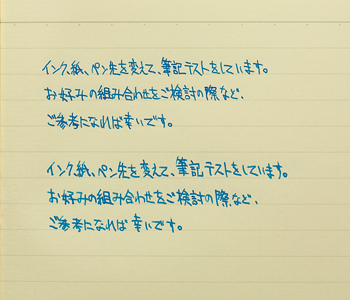 インク、紙、ペン先を変えて、筆記テストをしています。
お好みの組み合わせをご検討の際など、
ご参考になれば幸いです。
インク、紙、ペン先を変えて、筆記テストをしています。
お好みの組み合わせをご検討の際など、
ご参考になれば幸いです。